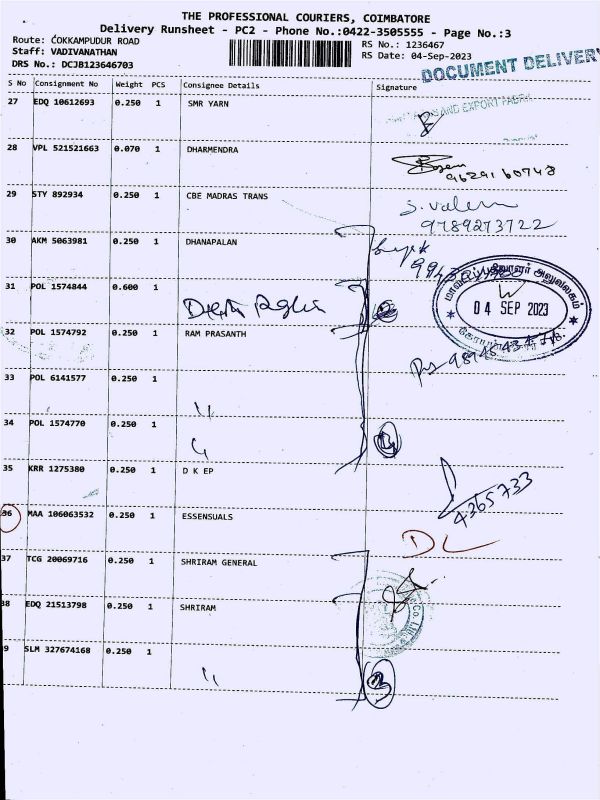 THE PROFESSIONAL COURIERS, COIMBATORE
Delivery Runsheet - PC2 - Phone No.:0422-3505555 - Page No.:3
Route: COKKAMPUDUR ROAD
RS No.: 1236467
Staff: VADIVANATHAN
RS Date: 04-Sep-2023
DRS No.: DCJB123646703
DOCUMENT DELIVERY
S No Consignment No Weight PCS Consignee Details Signature
27 EDQ 10612693 0.250 1 SMR YARN
AND EXPORT FABRI
28 VPL 521521663 0.070 1 DHARMENDRA
9629160748
29 STY 892934 0.250 1 CBE MADRAS TRANS
9789273722
30 AKM 5063981 0.250 1 DHANAPALAN
31 POL 1574844 0.600 1
அலுவலகம்
04 SEP 2023
32 POL 1574792 0.250 1 RAM PRASANTH
33 POL 6141577 0.250 1
"
34 POL 1574770 0.250 1
"
35 KRR 1275380 0.250 1 D K EP
4365733
36 MAA 106063532 0.250 1 ESSENSUALS
DL
37 TCG 20069716 0.250 1 SHRIRAM GENERAL
38 EDQ 21513798 0.250 1 SHRIRAM
Co. Ltd
9 SLM 327674168 0.250 1
"
3